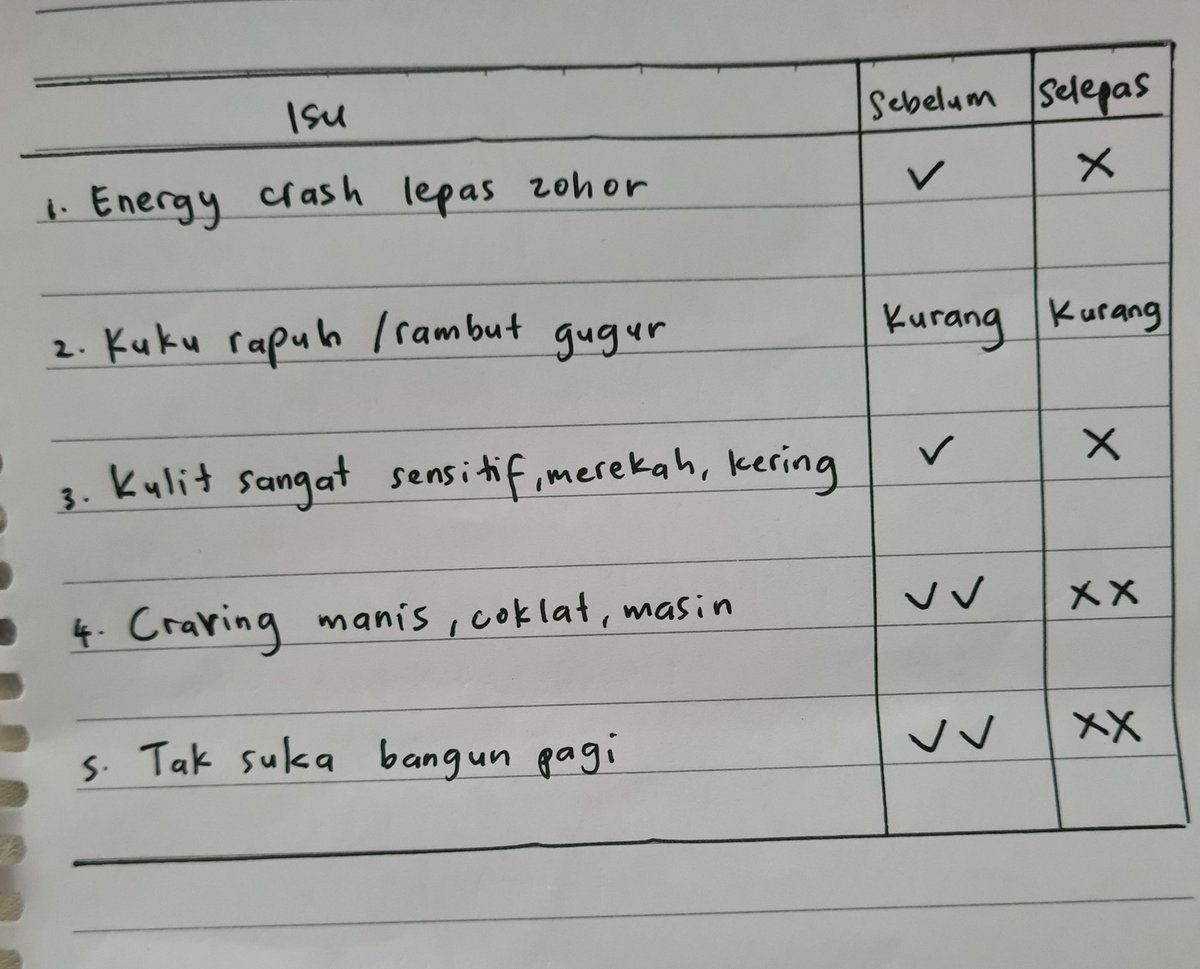 Isu Sebelum Selepas
1. Energy crash lepas zohor ✓ X
2. Kuku rapuh / rambut gugur Kurang Kurang
3. Kulit sangat sensitif, merekah, kering ✓ X
4. Craving manis, coklat, masin ✓✓ XX
5. Tak suka bangun pagi ✓✓ XX